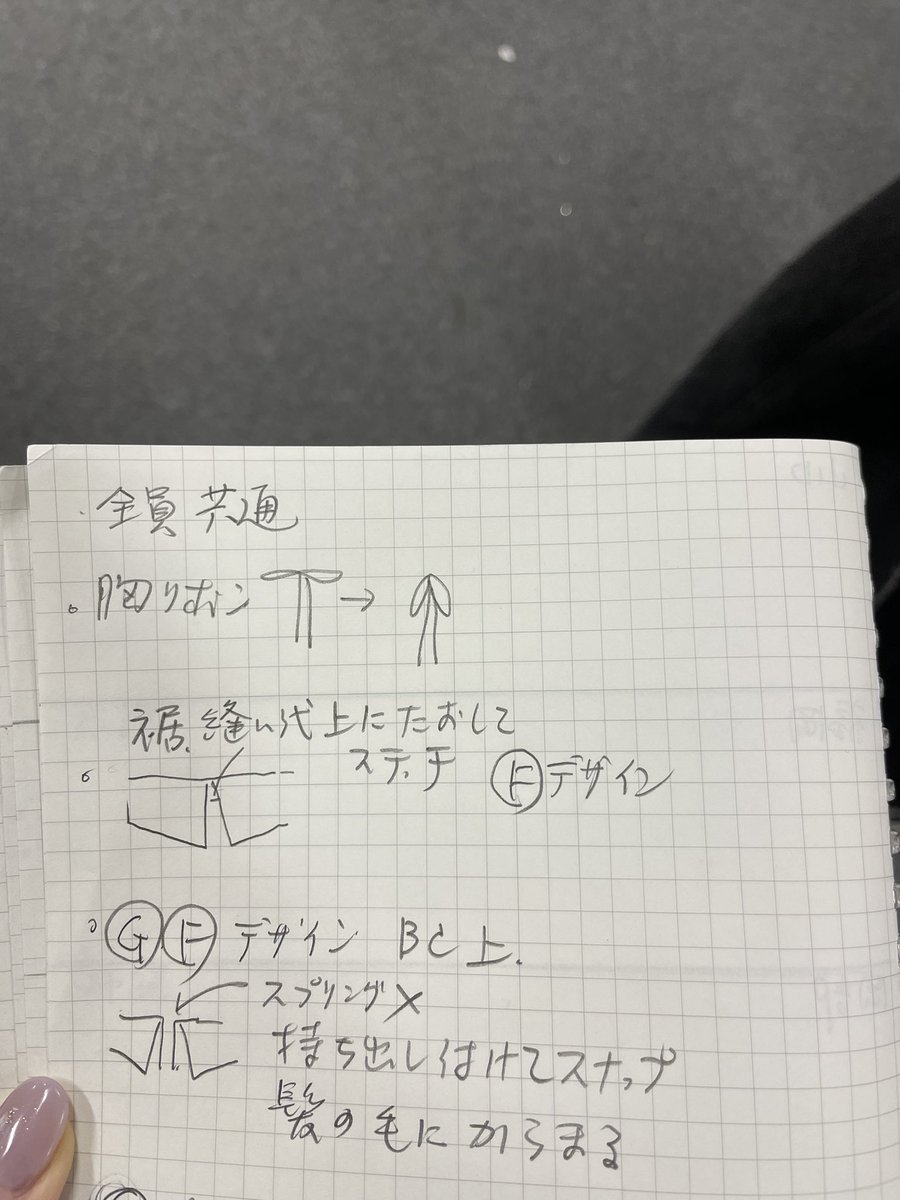 全員共通
胸リボン → 
裾縫い代上にたおして
ステッチ
Fデザイン
GFデザイン BC上.
スプリング×
持ち出し付けてスナップ
髪の毛にからまる